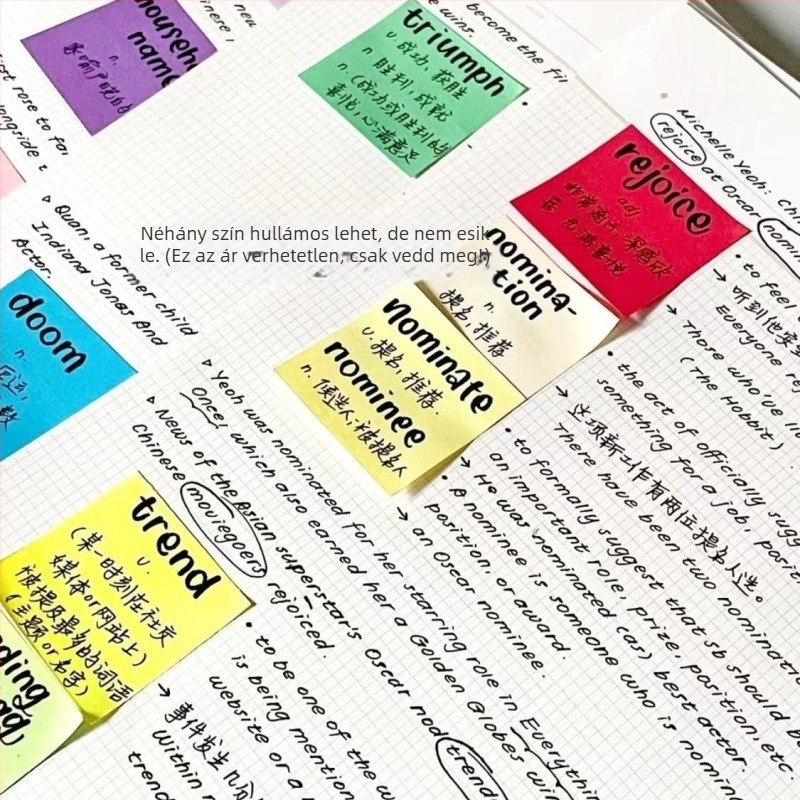 household
name
n.
家喻户晓的
triumph
v. 成功，获胜
n 胜利，成就
n.（成功或胜利的
喜悦，心满意足
become the fi
e wins.
new
inese,
irst rose to fa
longside
rejoice
adj
非常高兴，深感欣
喜，充满喜悦
Michelle Yeoh: Chi
rejoice at Oscar nomin
Néhány szín hullámos lehet, de nem esik
le. (Ez az ár verhetetlen, csak vedd megh)
nomina-
tion
n.
提名，推荐
nominate
v. 提名，推荐.
nominee
n. 候选人，被提名人
Quan, a former child
Indiana Jones And
Actor.
doom
n.
厄运，
数
Yeoh was nominated for her starring role in Everythin
Once, which also earned her a Golden Globes win
News of the Asian superstar's Oscar nod trend
Chinese moviegoers rejoiced.
trend
v.
（某一时刻在社交
媒体or网站上）
被提及最多的词语
（主题or名字）
ding
ad
to feel
听到他
Everyone rej
Those who've li
(The Hobbit)
the act of officially sugg
something for a job, positi
这项新工作有两位提名人选。
There have been two nominati
to formally suggest that sb should b
an important role, prize, position, etc.
He was nominated (as) best actor.
A nominee is someone who is nomin
position, or award.
an Oscar nominee.
to be one of the w
is being mention
website or a
事件发生几分
Within
trend